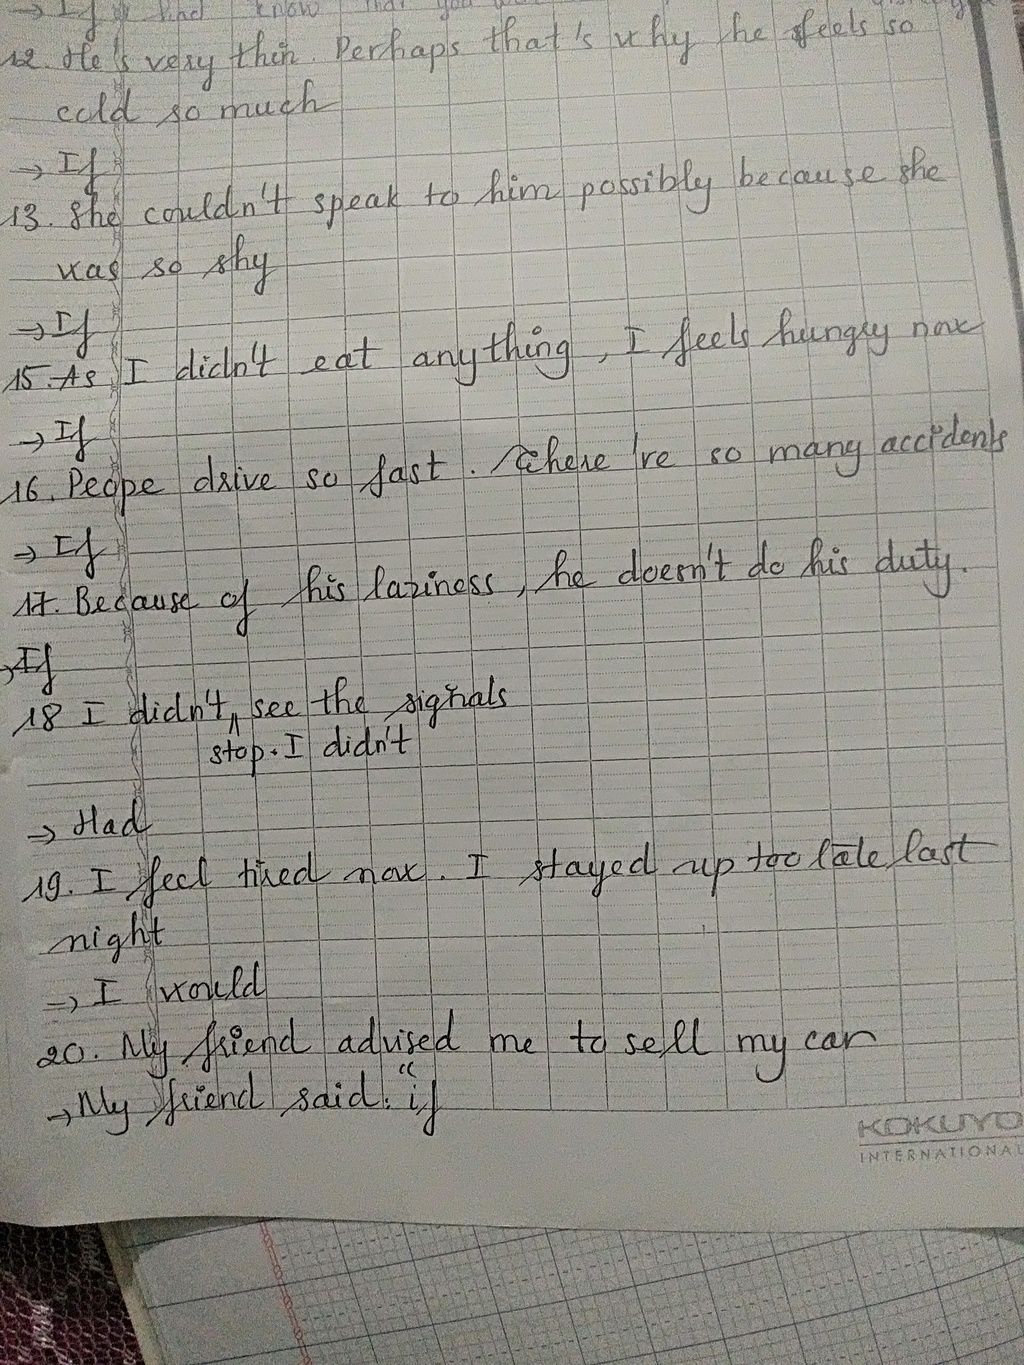 → If had know that you
12. He's very thin. Perhaps that's why he feels so
cold so much
→ If
13. She couldn't speak to him possibly because she
was so shy
→ If
15. As I didn't eat anything, I feels hungry now
→ If
16. Peope drive so fast. There 're so many accidents
→ If
17. Because of his laziness, he doesn't do his duty.
→ If
18 I didn't see the signals
stop. I didn't
→ Had
19. I feel tired now. I stayed up too late last
night
→ I would
20. My friend advised me to sell my car
→ My friend said: "if
KOKUYO
INTERNATIONAL